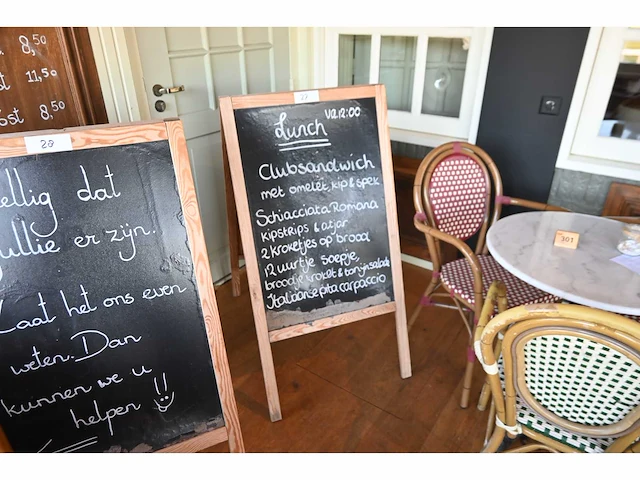 8,50
11,50
ost 8,50
28
ellig dat
ullie er zijn.
Laat het ons even
weten. Dan
kunnen we u
helpen !!
Lunch va.12:00
Clubsandwich
met omelet, kip & spek
Schiacciata Romana
kipstrips & atjar
2 kroketjes op brood
12 uurtje soepje,
broodje kroket & tonijnsalade
Italiaanse pita carpaccio
301